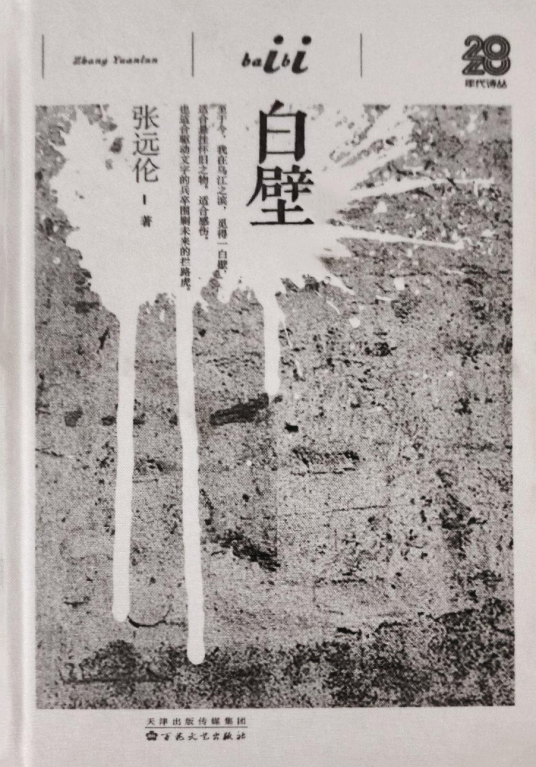 Zhang Yuanlun
baibi
2020
年代诗丛
白壁
至于今，我在乌江之滨，觅得一白壁，
适合悬挂怀旧之物，适合感伤。
也适合驱动文字的兵卒围剿未来的拦路虎。
张远伦 著
天津出版传媒集团
百花文艺出版社